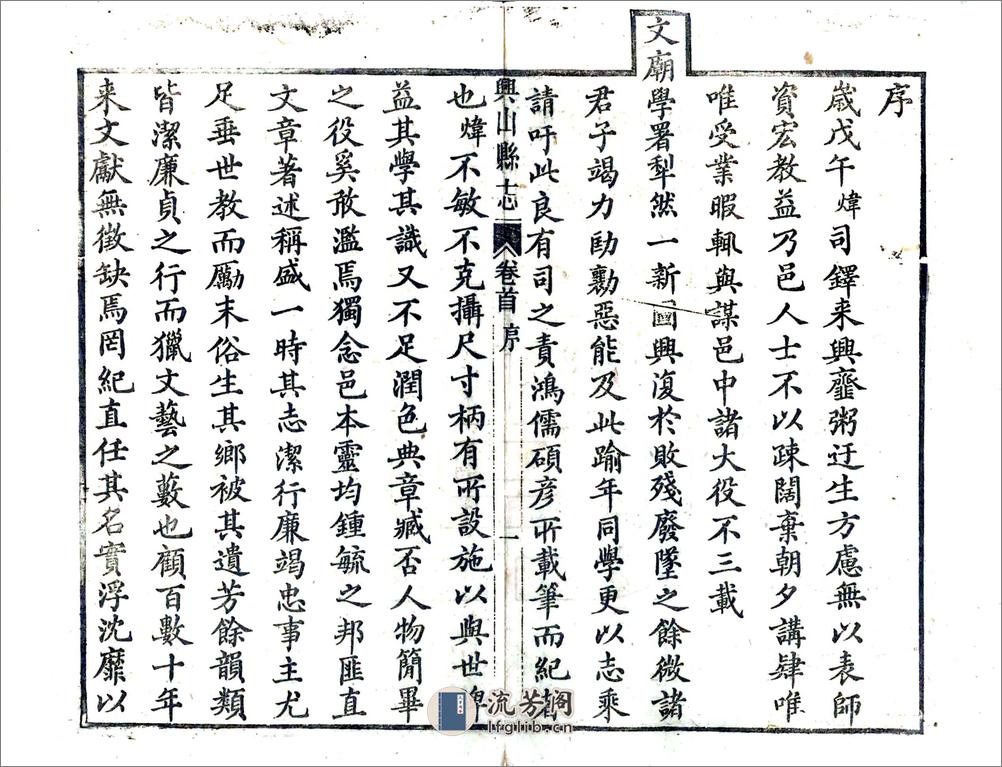 序
歲戊午煒司鐸来興虀粥迂生方慮無以表師
資宏教益乃邑人士不以疎闊棄朝夕講肄唯
唯受業暇輒與謀邑中諸大役不三載
文廟學署犁然一新圖興復於敗殘廢墜之餘微諸
君子竭力助勷惡能及此踰年同學更以志乘
請吁此良有司之責鴻儒碩彦所載筆而紀者
興山縣志 卷首 序 一
也煒不敏不克攝尺寸柄有所設施以與世裨
益其學其識又不足潤色典章臧否人物簡畢
之役奚敢濫焉獨念邑本靈均鍾毓之邦匪直
文章著述稱盛一時其志潔行廉竭忠事主尤
足垂世教而勵末俗生其鄉被其遺芳餘韻類
皆潔廉貞之行而獵文藝之藪也顧百數十年
来文獻無徵缺焉罔紀直任其名實浮沈靡以
流芳阁
lfglib.cn